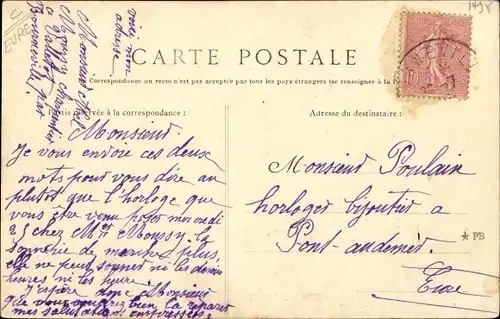 C
EURE
1478
voici mon
adresse
Monsieur
Moussy charpentier
a
Bourneville par
CARTE POSTALE
Correspondance au recto n'est pas acceptée par tous les pays étrangers (se renseigner à la
Partie réservée à la correspondance :
Adresse du destinataire :
Monsieur
Je vous envoie ces deux
mots pour vous dire au
plutot que l'horloge que
vous ete venu poser mercredi
25 chez Mr Moussy la
sonnerie de marche plus
elle ne peut sonner ni les demis
heures ni les heure.
J'espère donc Monsieur
que vous voudrez bien la reparer
mes salutations empressées
Monsieur Poulain
horloger bijoutier a
Pont-audemer
Eure
★ PB
10